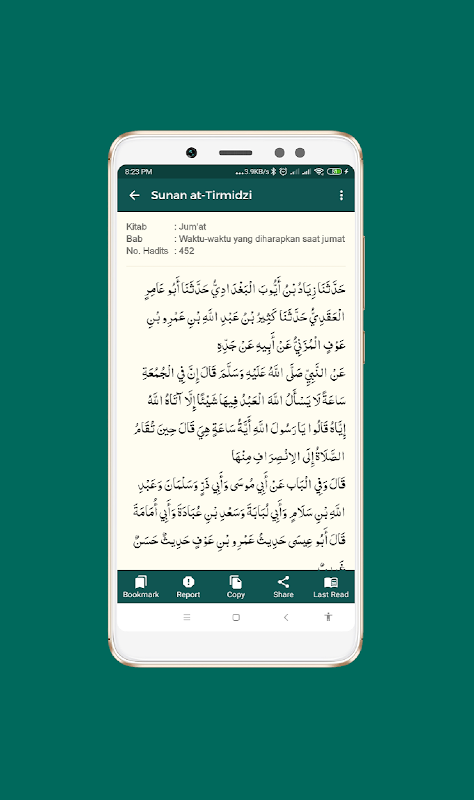 8:23 PM ...3.9KB/s
Sunan at-Tirmidzi
Kitab : Jum'at
Bab : Waktu-waktu yang diharapkan saat jumat
No. Hadits : 452
حَدَّثَنَا زِيَادُ بْنُ أَيُّوبَ الْبَغْدَادِيُّ حَدَّثَنَا أَبُو عَامِرٍ
الْعَقَدِيُّ حَدَّثَنَا كَثِيرُ بْنُ عَبْدِ اللَّهِ بْنِ عَمْرِو بْنِ
عَوْفٍ الْمُزَنِيُّ عَنْ أَبِيهِ عَنْ جَدِّهِ
عَنْ النَّبِيِّ صَلَّى اللَّهُ عَلَيْهِ وَسَلَّمَ قَالَ إِنَّ فِي الْجُمُعَةِ
سَاعَةً لَا يَسْأَلُ اللَّهَ الْعَبْدُ فِيهَا شَيْئًا إِلَّا آتَاهُ اللَّهُ
إِيَّاهُ قَالُوا يَا رَسُولَ اللَّهِ أَيَّةُ سَاعَةٍ هِيَ قَالَ حِينَ تُقَامُ
الصَّلَاةُ إِلَى الِانْصِرَافِ مِنْهَا
قَالَ وَفِي الْبَاب عَنْ أَبِي مُوسَى وَأَبِي ذَرٍّ وَسَلْمَانَ وَعَبْدِ
اللَّهِ بْنِ سَلَامٍ وَأَبِي لُبَابَةَ وَسَعْدِ بْنِ عُبَادَةَ وَأَبِي أُمَامَةَ
قَالَ أَبُو عِيسَى حَدِيثُ عَمْرِو بْنِ عَوْفٍ حَدِيثٌ حَسَنٌ
Bookmark Report Copy Share Last Read